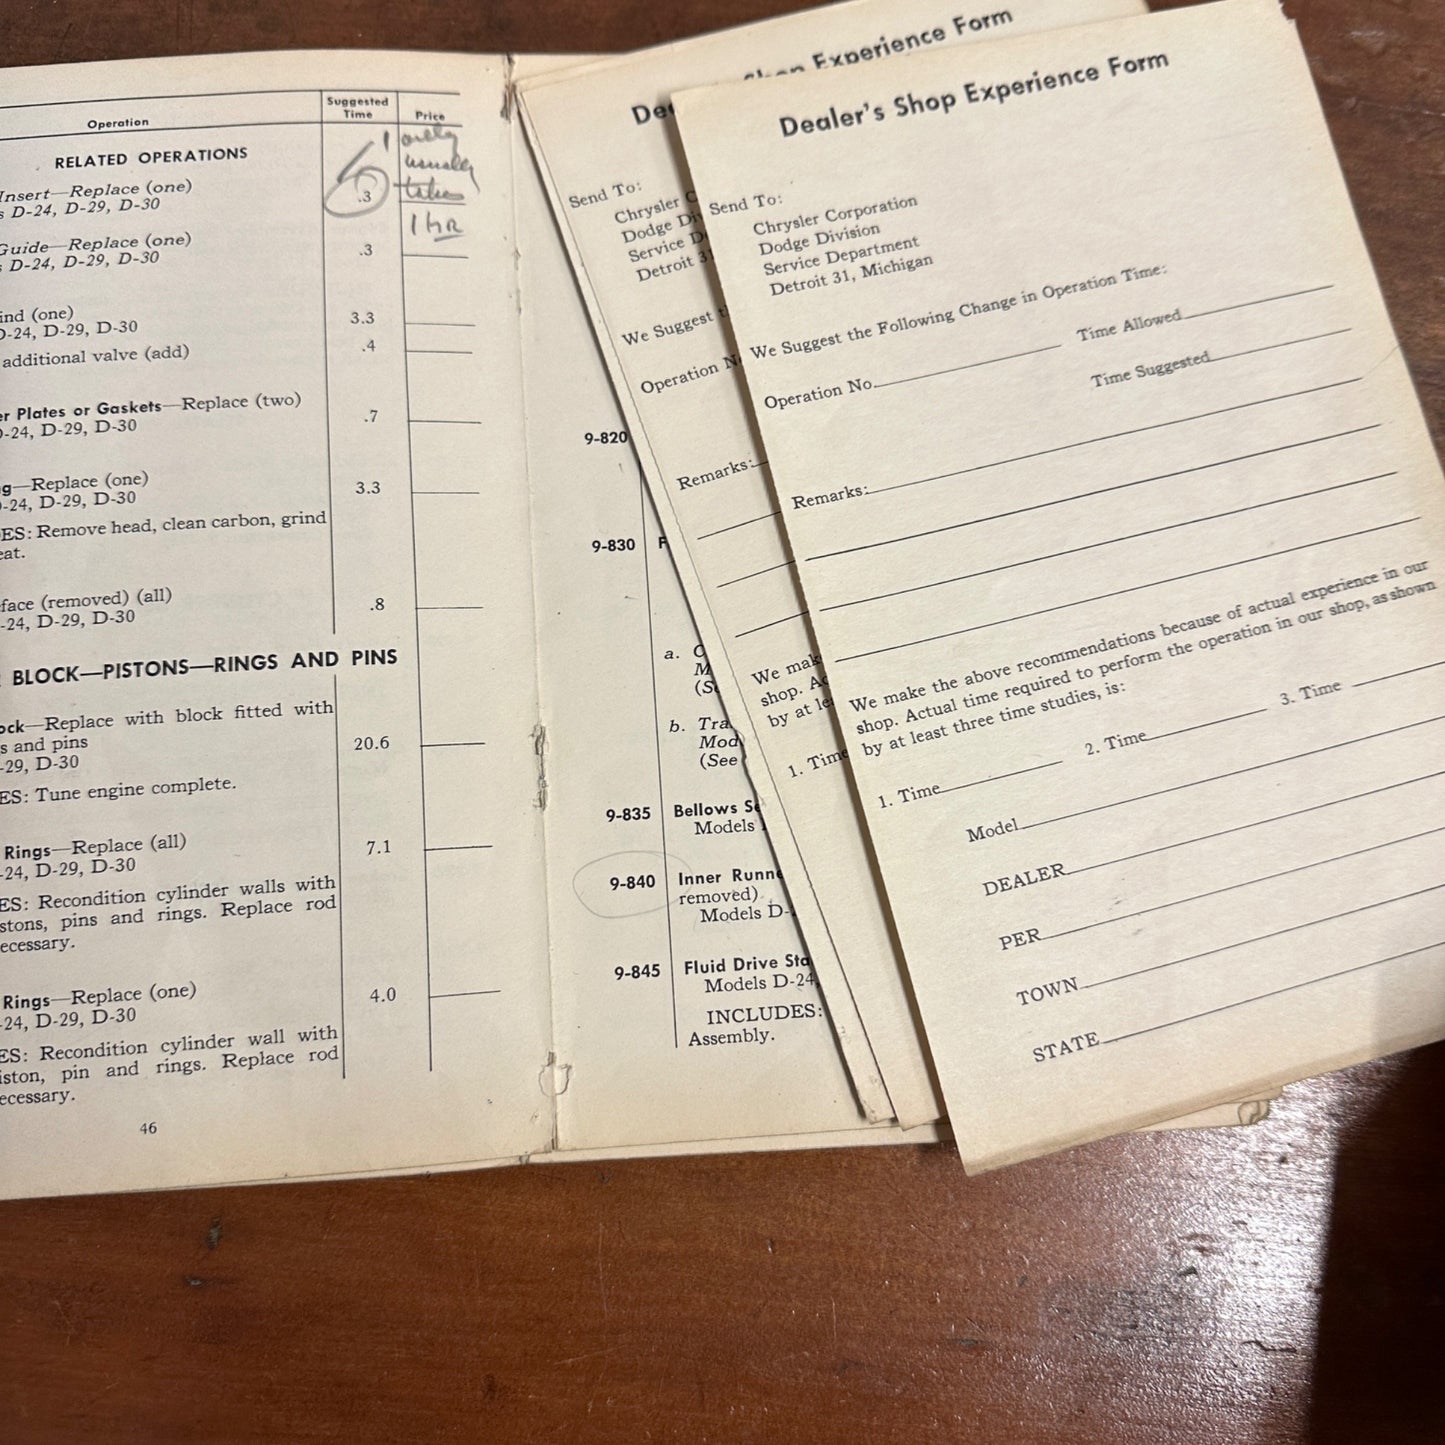 Operation
Suggested
Time
Price
RELATED OPERATIONS
Insert—Replace (one)
D-24, D-29, D-30
.3
usually
takes
1 HR
Guide—Replace (one)
D-24, D-29, D-30
.3
(one)
D-24, D-29, D-30
3.3
additional valve (add)
.4
Plates or Gaskets—Replace (two)
-24, D-29, D-30
.7
—Replace (one)
-24, D-29, D-30
3.3
ES: Remove head, clean carbon, grind
(removed) (all)
-24, D-29, D-30
.8
BLOCK—PISTONS—RINGS AND PINS
—Replace with block fitted with
and pins
-29, D-30
20.6
ES: Tune engine complete.
Rings—Replace (all)
-24, D-29, D-30
7.1
ES: Recondition cylinder walls with
pins and rings. Replace rod
Rings—Replace (one)
-24, D-29, D-30
4.0
ES: Recondition cylinder wall with
pin and rings. Replace rod
46
9-820
9-830
a.
b.
Mod
(See
9-835 Bellows
Models
9-840 Inner
removed)
Models D-
9-845 Fluid Drive
Models D-24,
INCLUDES:
Assembly.
Shop Experience Form
Send To:
Chrysler
Dodge
Service
Detroit 31
We Suggest
Operation
Remarks:
We
shop.
by at
1. Time
Dealer's Shop Experience Form
Send To:
Chrysler Corporation
Dodge Division
Service Department
Detroit 31, Michigan
We Suggest the Following Change in Operation Time:
Operation No. Time Allowed
Time Suggested
Remarks:
We make the above recommendations because of actual experience in our
shop. Actual time required to perform the operation in our shop, as shown
by at least three time studies, is:
1. Time 2. Time 3. Time
Model
DEALER
PER
TOWN
STATE